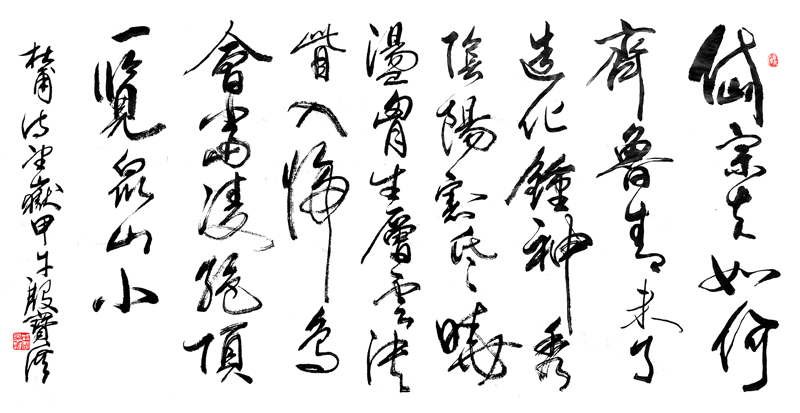 岱宗夫如何
齊魯青未了
造化鍾神秀
陰陽割昏曉
盪胷生層雲決
眥入歸鳥
會當凌絕頂
一覽眾山小
杜甫詩望嶽甲午殷寶